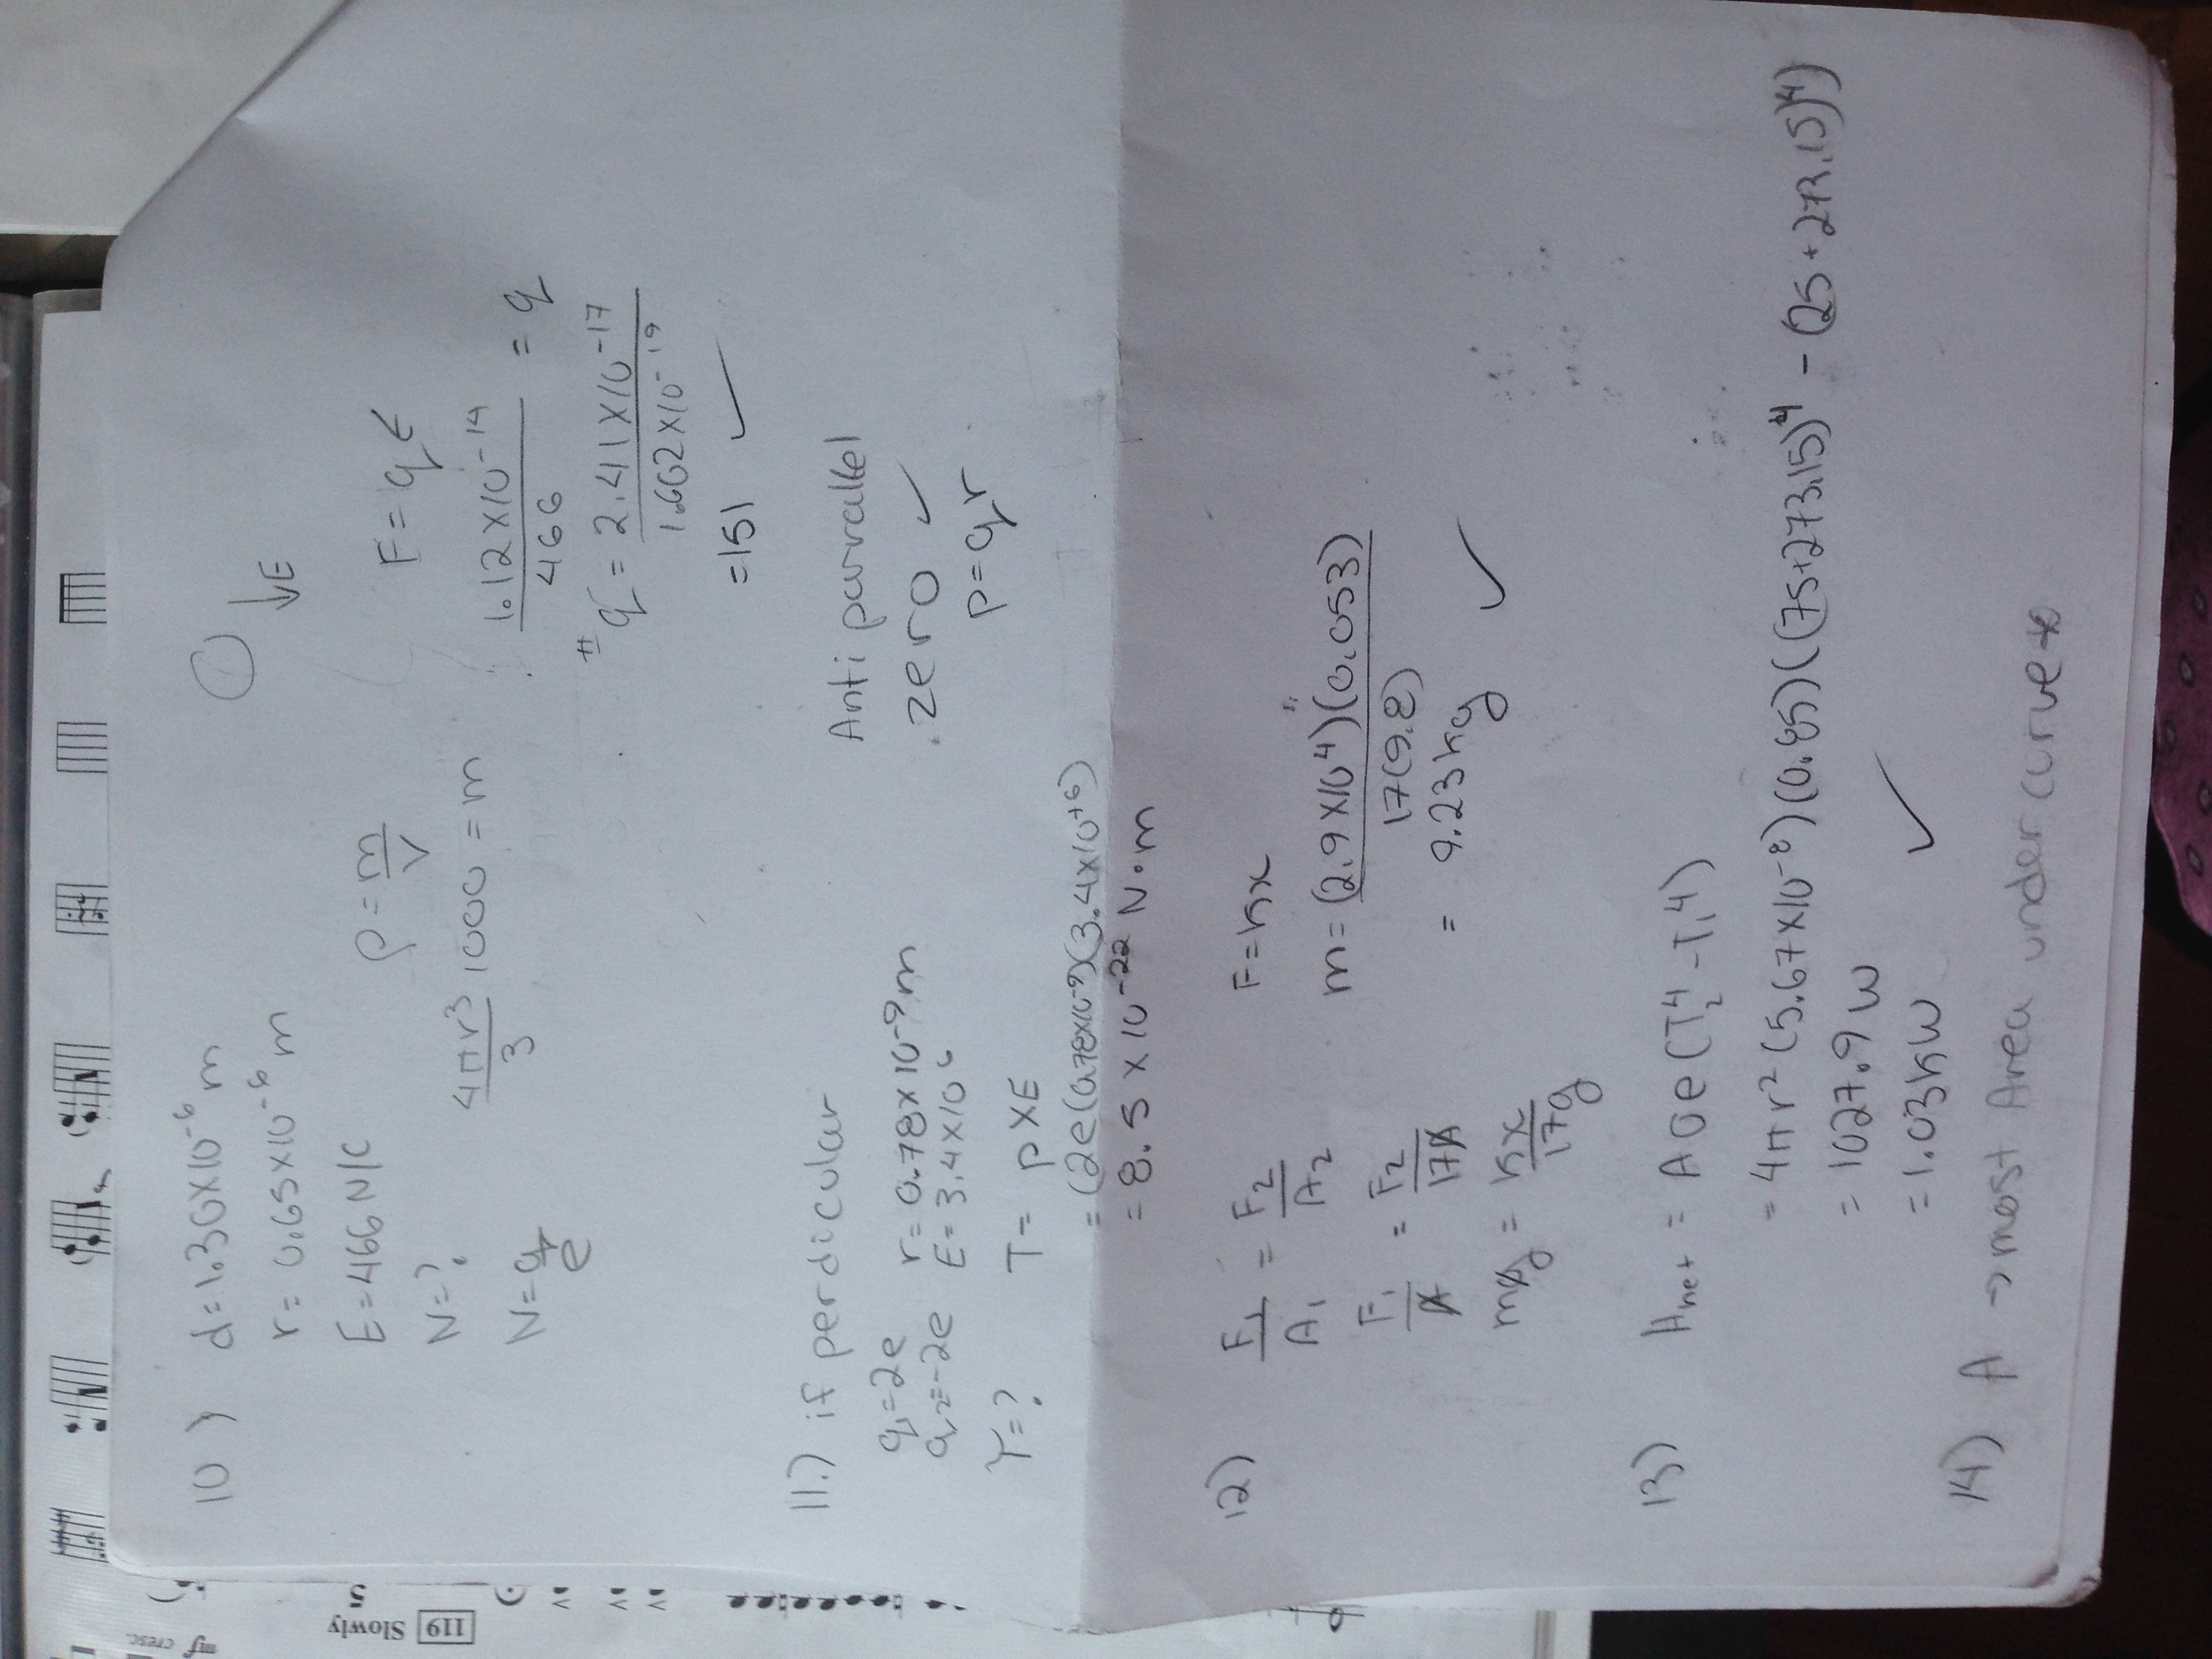 10) d = 1.30 x 10⁻⁶ m
r = 0.65 x 10⁻⁶ m
E = 466 N/C
N = ?
N = q/e
ρ = m/V
4πr³/3 1000 = m
↓E
F = qE
1.12 x 10⁻¹⁴/466 = q
# q = 2.41 x 10⁻¹⁷/1.602 x 10⁻¹⁹
= 151 ✓
11.) if perdicular
q₁ = 2e r = 0.78 x 10⁻⁹ m
q₂ = -2e E = 3.4 x 10⁶
τ = ?
T = p x E
= (2e(0.78x10⁻⁹)(3.4x10⁺⁶)
= 8.5 x 10⁻²² N·m
Anti parrallel
. zero ✓
p = qr
12) F₁/A₁ = F₂/A₂
F₁/A = F₂/17A
mg = kx/17g
F = kx
m = (2.9 x 10⁴)(0.053)/17(9.8)
= 9.23 kg ✓
13) Hnet = Aσe(T₂⁴ - T₁⁴)
= 4πr²(5.67 x 10⁻⁸)(0.85)((75+273.15)⁴ - (25+273.15)⁴)
= 1027.9 W
= 1.03 kW ✓
14) A → most Area under curve
119 Slowly
mf cresc.
5